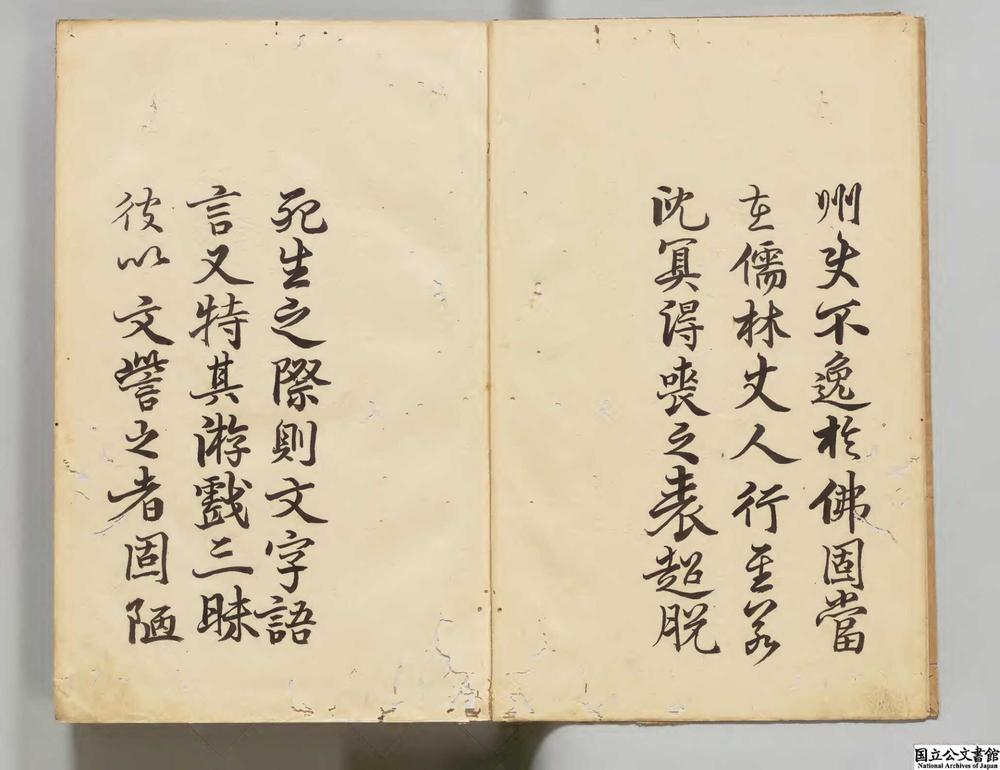 州不逸於佛固當
在儒林丈人行至若
沈冥得喪之表超脱
死生之際則文字語
言又特其游戲三昧
彼以文訾之者固陋
国立公文書館
National Archives of Japan